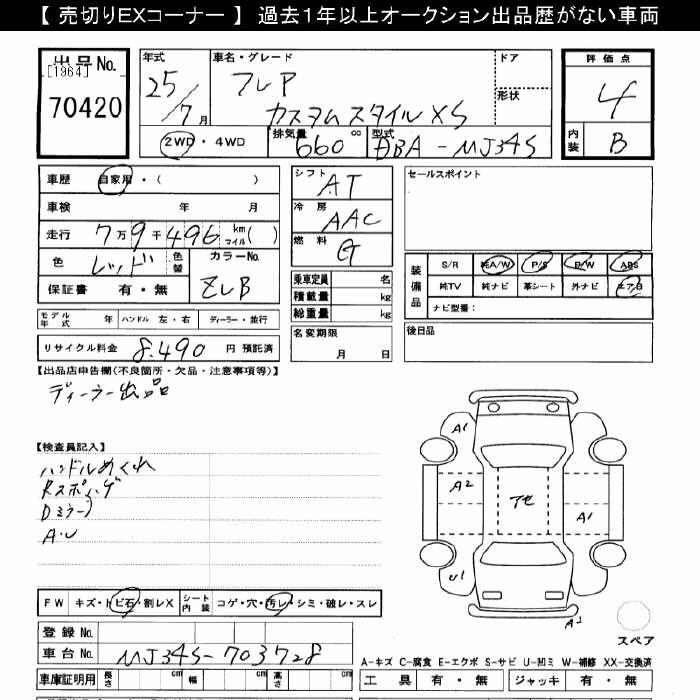 【 売切りEXコーナー 】 過去1年以上オークション出品歴がない車両
出品No.
[1964]
70420
年式
25/7月
車名・グレード
フレア
カスタムスタイルXS
ドア
形状
2WD・4WD
排気量
660 cc
型式
DBA-MJ34S
評価点
4
内装
B
車歴 自家用・( )
車検 年 月
走行 7万9千496 km マイル( )
色 レッド 色替
カラーNo.
ZLB
保証書 有・無
モデル年式 年 ハンドル 左・右 ディーラー・並行
リサイクル料金 8,490 円 預託済
シフト AT
冷房 AAC
燃料 G
乗車定員 名
積載量 kg
総重量 kg
名変期限
月 日
セールスポイント
装備品
S/R 純A/W P/S P/W ABS
純TV 純ナビ 革シート 外ナビ エアB
ナビ型番:
後日品
【出品店申告欄(不良箇所・欠品・注意事項等)】
ディーラー出品
【検査員記入】
ハンドルめくれ
A.U
A1
A2
アセ
A1
U1
スペア
FW キズ・トビ石・割レX シート内装 コゲ・穴・汚レ・シミ・破レ・スレ
登録No.
車台No. MJ34S-703728
車庫証明用 長さ cm 幅 cm 高さ cm
A-キズ C-腐食 E-エクボ S-サビ U-凹ミ W-補修 XX-交換済
工具 有・無 ジャッキ 有・無